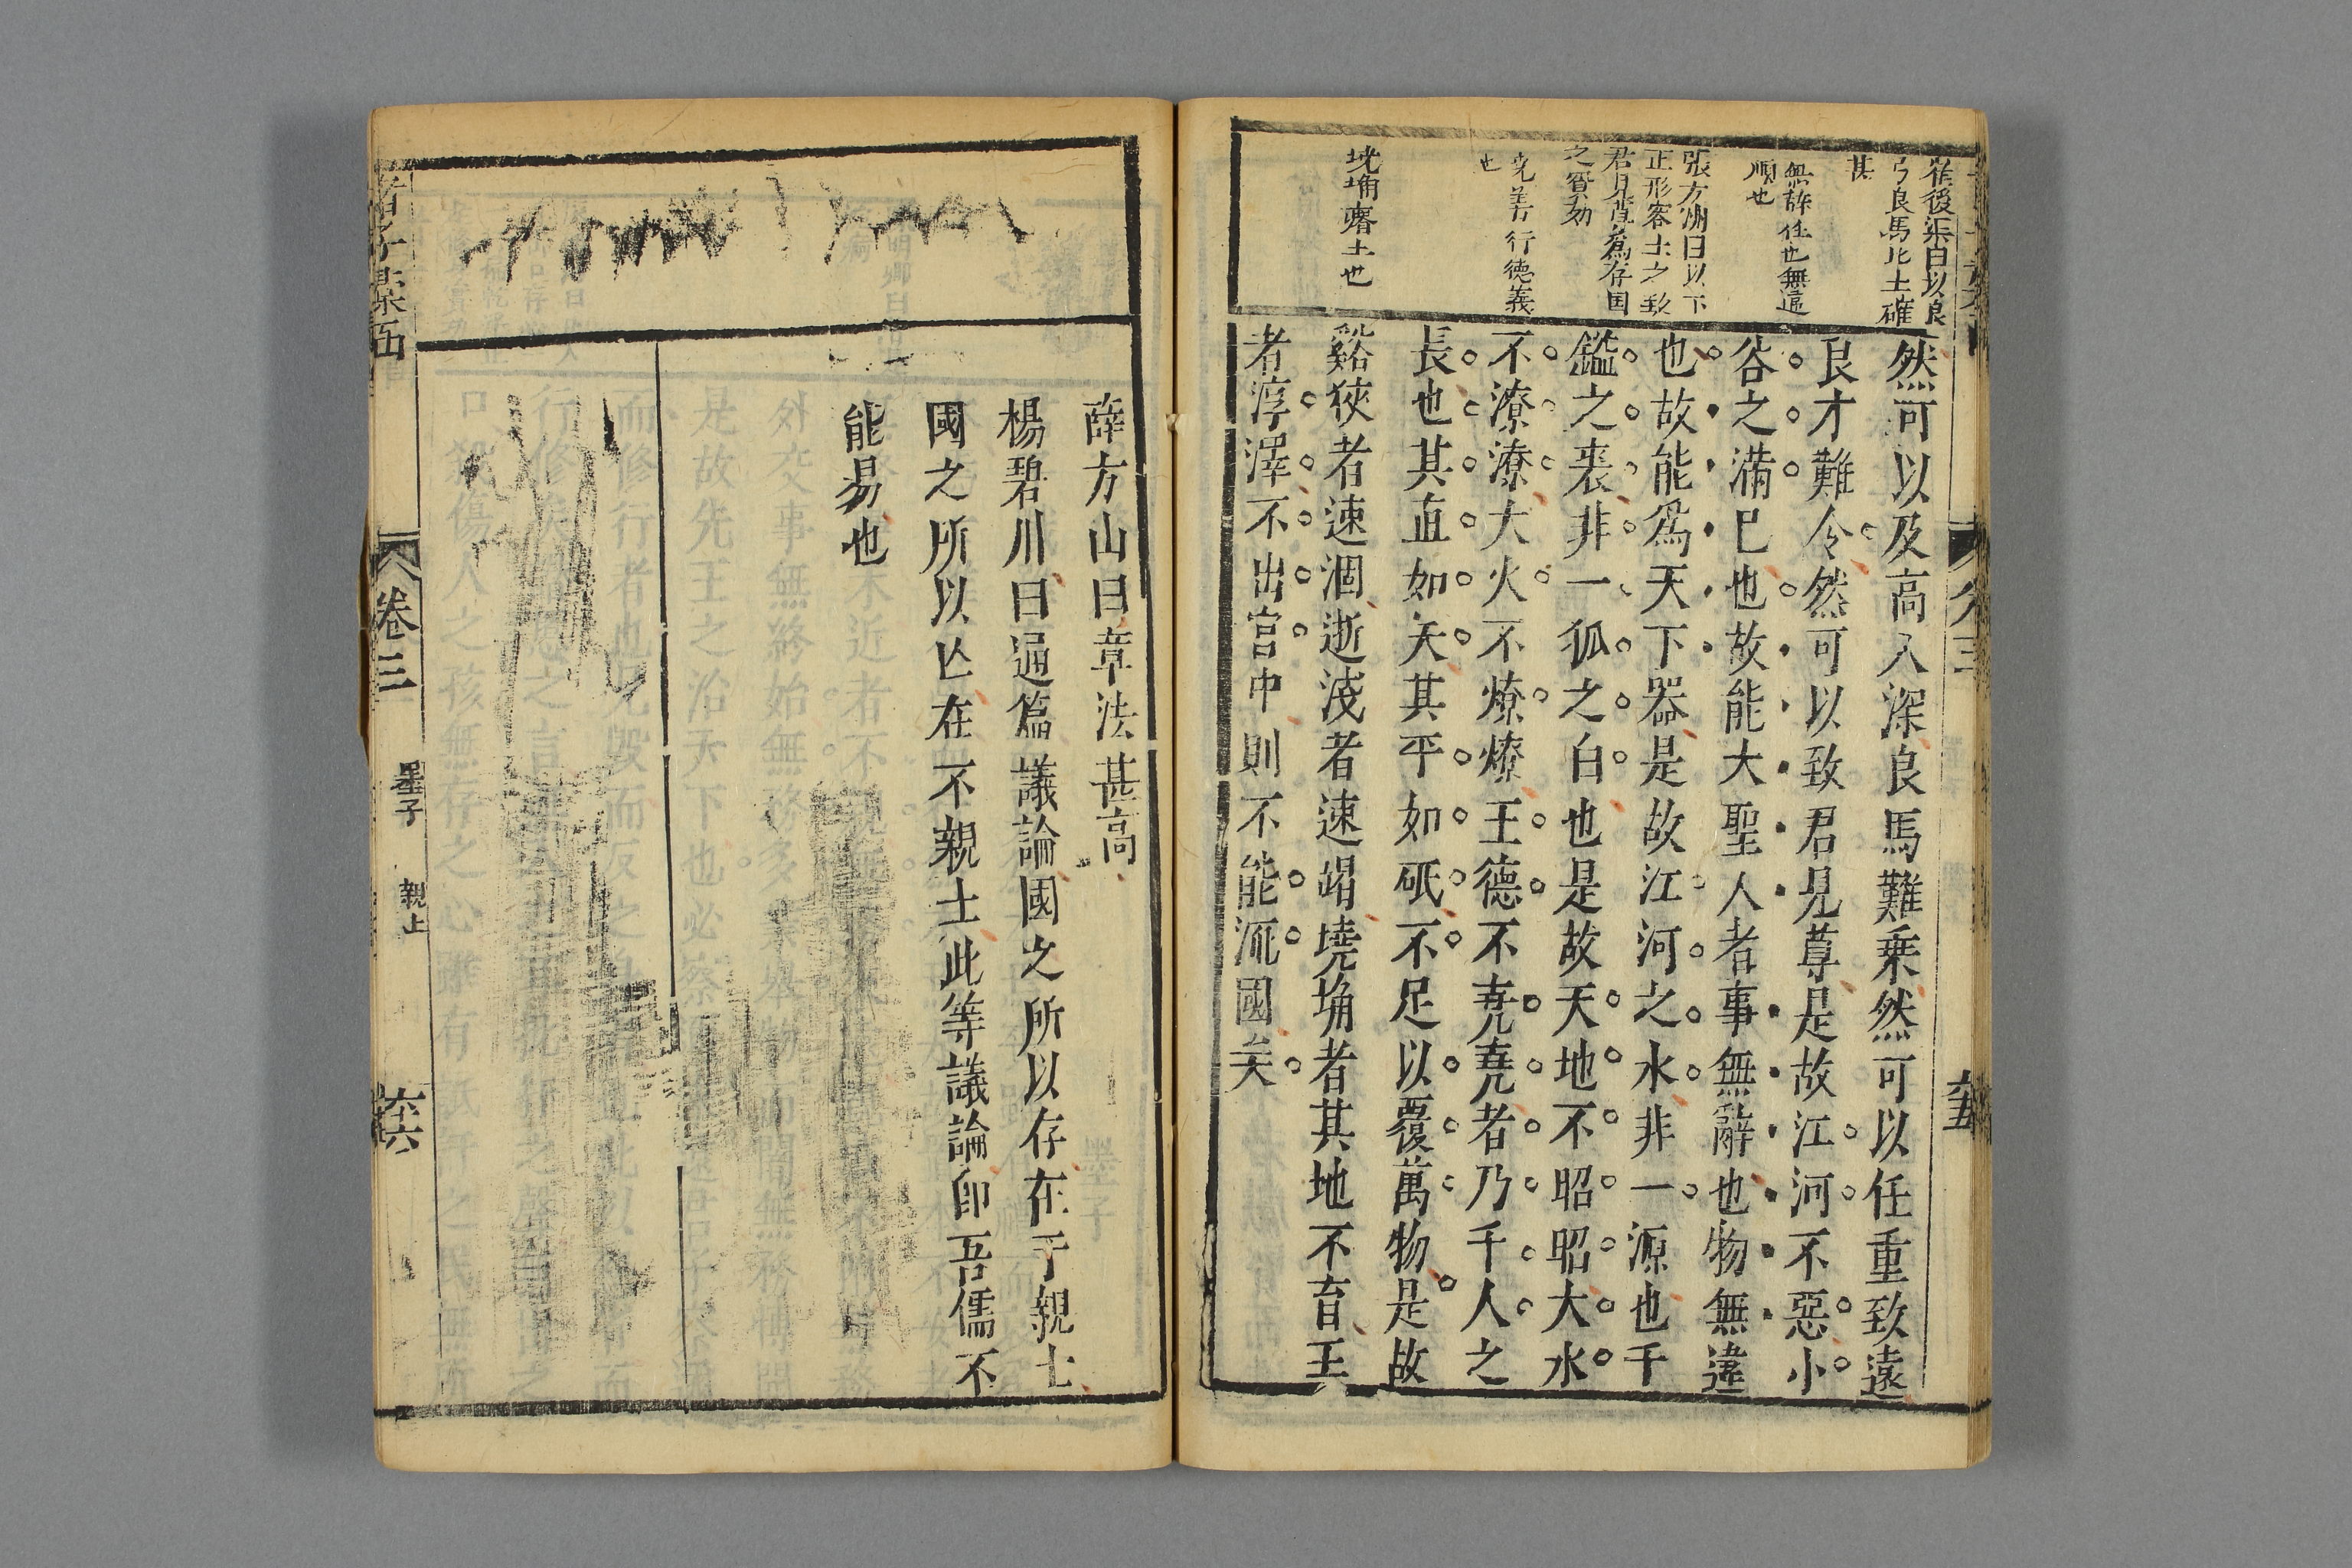 崔後渠曰以良
弓良馬比士確
甚
無辭任也無違
順也
張方洲曰以下
正形容士之致
君見尊爲存国
之賢劾
尭善行德義
也
墝埆瘠土也
然可以及高入深良馬難乗然可以任重致遠
良才難令然可以致君見尊是故江河不惡小
谷之滿已也故能大聖人者事無辭也物無違
也故能爲天下器是故江河之水非一源也千
鎰之裘非一狐之白也是故天地不昭昭大水
不潦潦大火不燎燎王德不尭尭者乃千人之
長也其直如矢其平如砥不足以覆萬物是故
谿狹者速涸逝淺者速竭墝埆者其地不育王
者淳澤不出宫中則不能流國矣
薛方山曰章法甚高
楊碧川曰通篇議論國之所以存在于親士
國之所以亡在不親士此等議論卽吾儒不
能易也
卷三
墨子
親士
六六